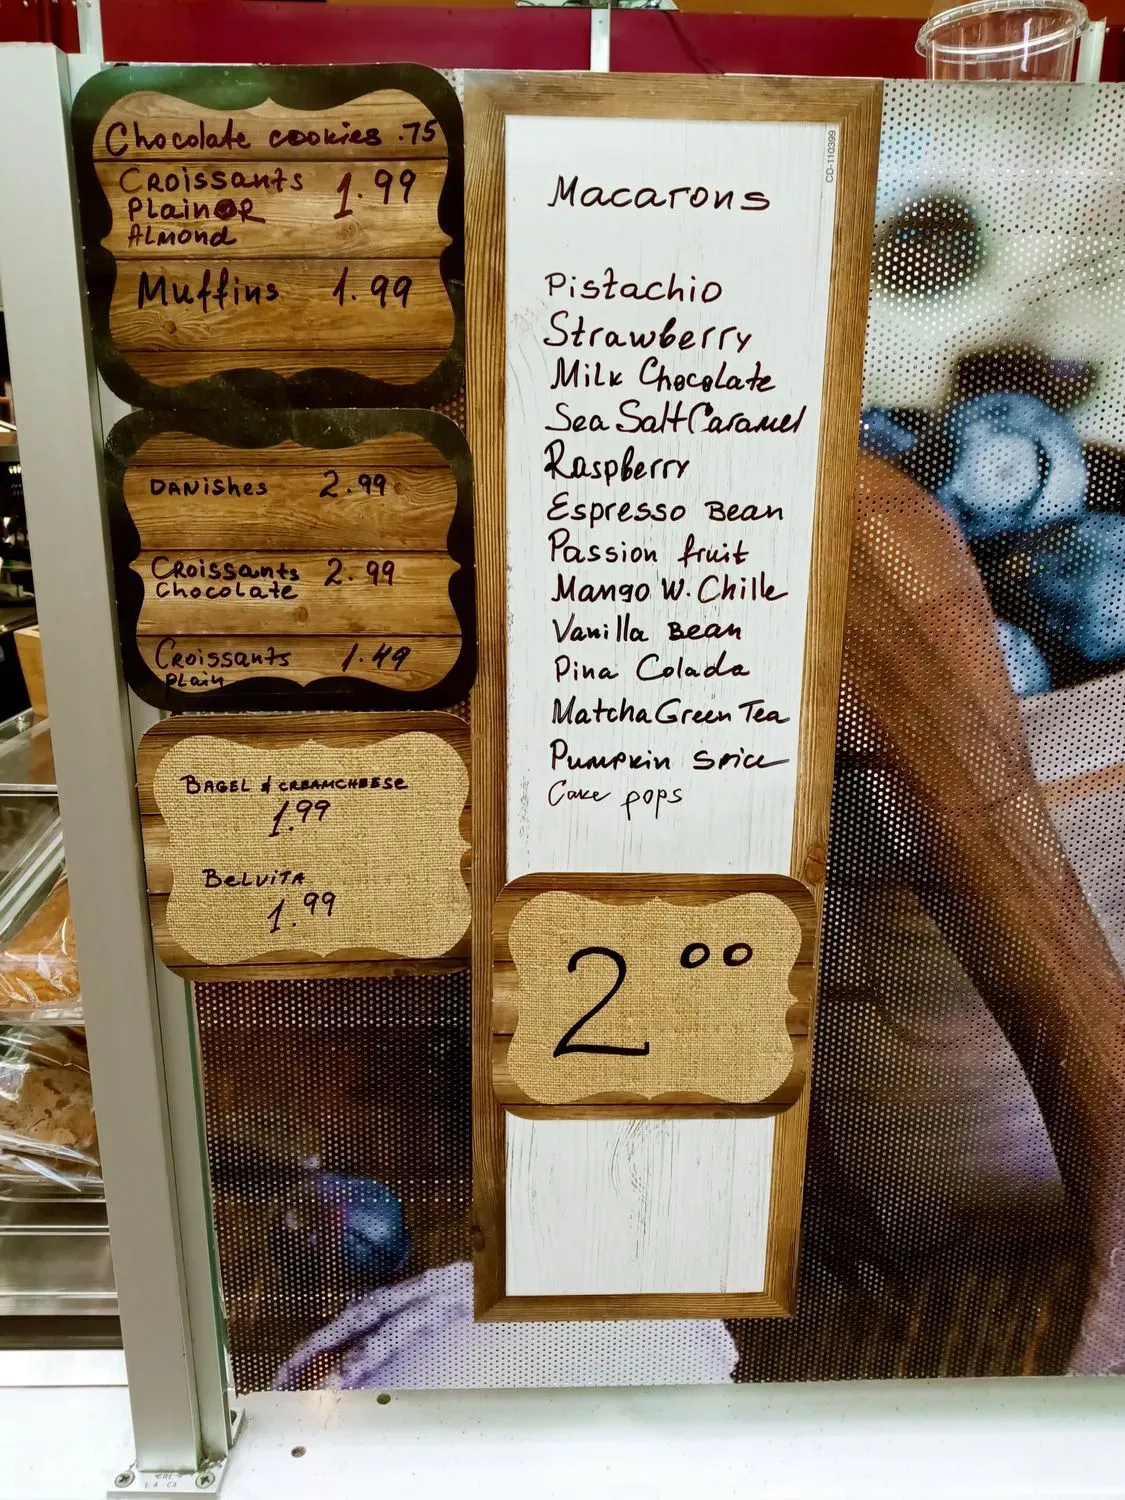 Chocolate cookies .75
Croissants 1.99
Plain OR
Almond
Muffins 1.99
Danishes 2.99
Croissants 2.99
Chocolate
Croissants 1.49
Plain
Bagel & creamcheese
1.99
Belvita
1.99
CD-110399
Macarons
Pistachio
Strawberry
Milk Chocolate
Sea Salt Caramel
Raspberry
Espresso Bean
Passion fruit
Mango W. Chille
Vanilla Bean
Pina Colada
Matcha Green Tea
Pumpkin Spice
Cake pops
2.00